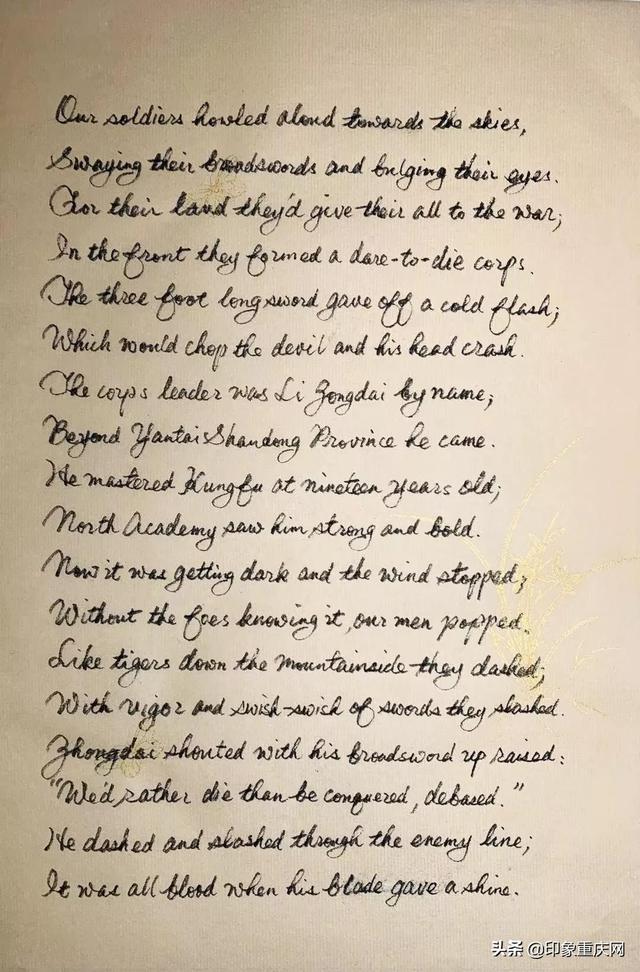 Our soldiers howled aloud towards the skies,
Swaying their broadswords and bulging their eyes.
For their land they'd give their all to the war;
In the front they formed a dare-to-die corps.
The three foot long sword gave off a cold flash;
Which would chop the devil and his head crash.
The corps leader was Li Zongdai by name;
Beyond Yantai Shandong Province he came.
He mastered Kungfu at nineteen years old;
North Academy saw him strong and bold.
Now it was getting dark and the wind stopped;
Without the foes knowing it, our men popped.
Like tigers down the mountainside they dashed;
With vigor and swish-swish of swords they slashed.
Zhongdai shouted with his broadsword up raised:
"We'd rather die than be conquered, debased."
He dashed and slashed through the enemy line;
It was all blood when his blade gave a shine.
头条 @印象重庆网